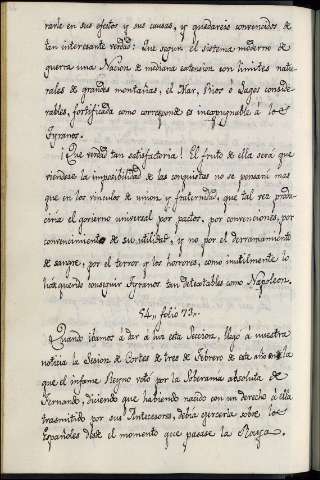 rarle en sus efectos y sus causas, y quedareis convencidos de
tan interesante verdad: Que segun el sistema moderno de
guerra una Nacion de mediana extension con limites natu-
rales de grandes montañas, el Mar, Rios ó Lagos conside
rables, fortificada como corresponde es inexpugnable á los
Tyranos.
¡Que verdad tan satisfactoria! El fruto de ella será que
viendose la imposibilidad de las conquistas no se pensará mas
que en los vinculos de union y fraternidad, que tal vez produ-
ciria el govierno universal por pactos, por convenciones, por
convencimiento de su utilidad, y no por el derramamiento
de sangre, por el terror y los horrores, como inutilmente lo
han querido conseguir Tyranos tan detestables como Napoleon.
54, folio 73,,
Quando ibamos á dar á luz esta Seccion, llegó á nuestra
noticia la Sesion de Cortes de tres de Febrero de este año en la
que el infame Reyno votó por la Soberania absoluta de
Fernando, diciendo que habiendo nacido con un derecho á ella
trasmitido por sus Antecesores, debia ejercerla sobre los
Españoles desde el momento que pasase la Raya.